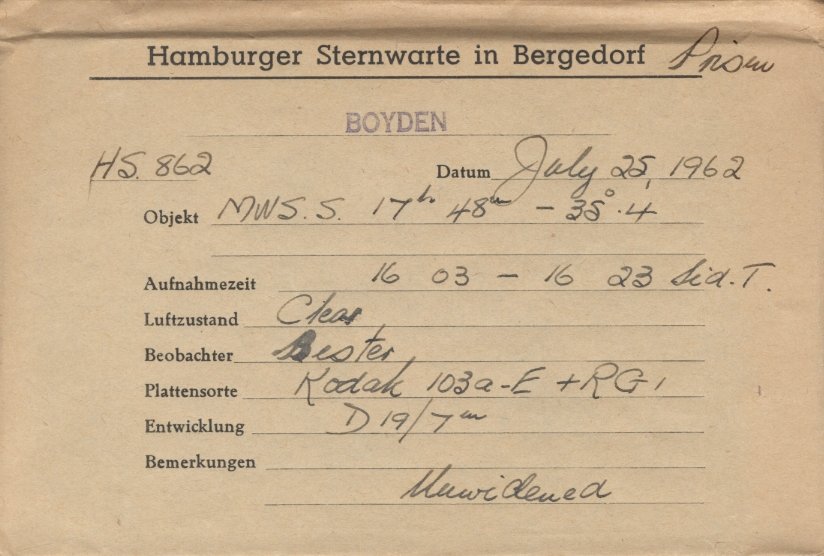 Hamburger Sternwarte in Bergedorf Prism
BOYDEN
HS. 862 Datum July 25, 1962
Objekt MWS. S. 17h 48m - 35°.4
Aufnahmezeit 16 03 - 16 23 Sid. T.
Luftzustand Clear
Beobachter Bester
Plattensorte Kodak 103a-E + RG1
Entwicklung D19/7m
Bemerkungen
Unwidened